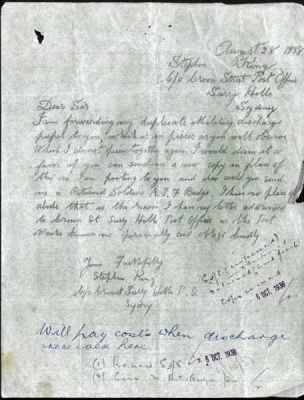 August 28 1938
Stephen King
c/o Crown Street Post Office
Surry Hills
Sydney
Dear Sir
I am forwarding my duplicate Military discharge
papers to you, which is in pieces as you will observe
What I almost been together again I would deem it a
favor if you can send me a new copy in place of
the one I am posting to you and also would you send
me a Returned Soldiers A.I.F Badge. I have no place
abode that is the reason I am having letter addressed
to Crown St Surry Hills Post Office as the Post
Master knows me personally and oblige kindly
Yours Faithfully
Stephen King
c/o Crown St Surry Hills P.O
Sydney
6 OCT. 1938
Will pay costs when discharge
received here
6 OCT. 1938
(1)
(2)